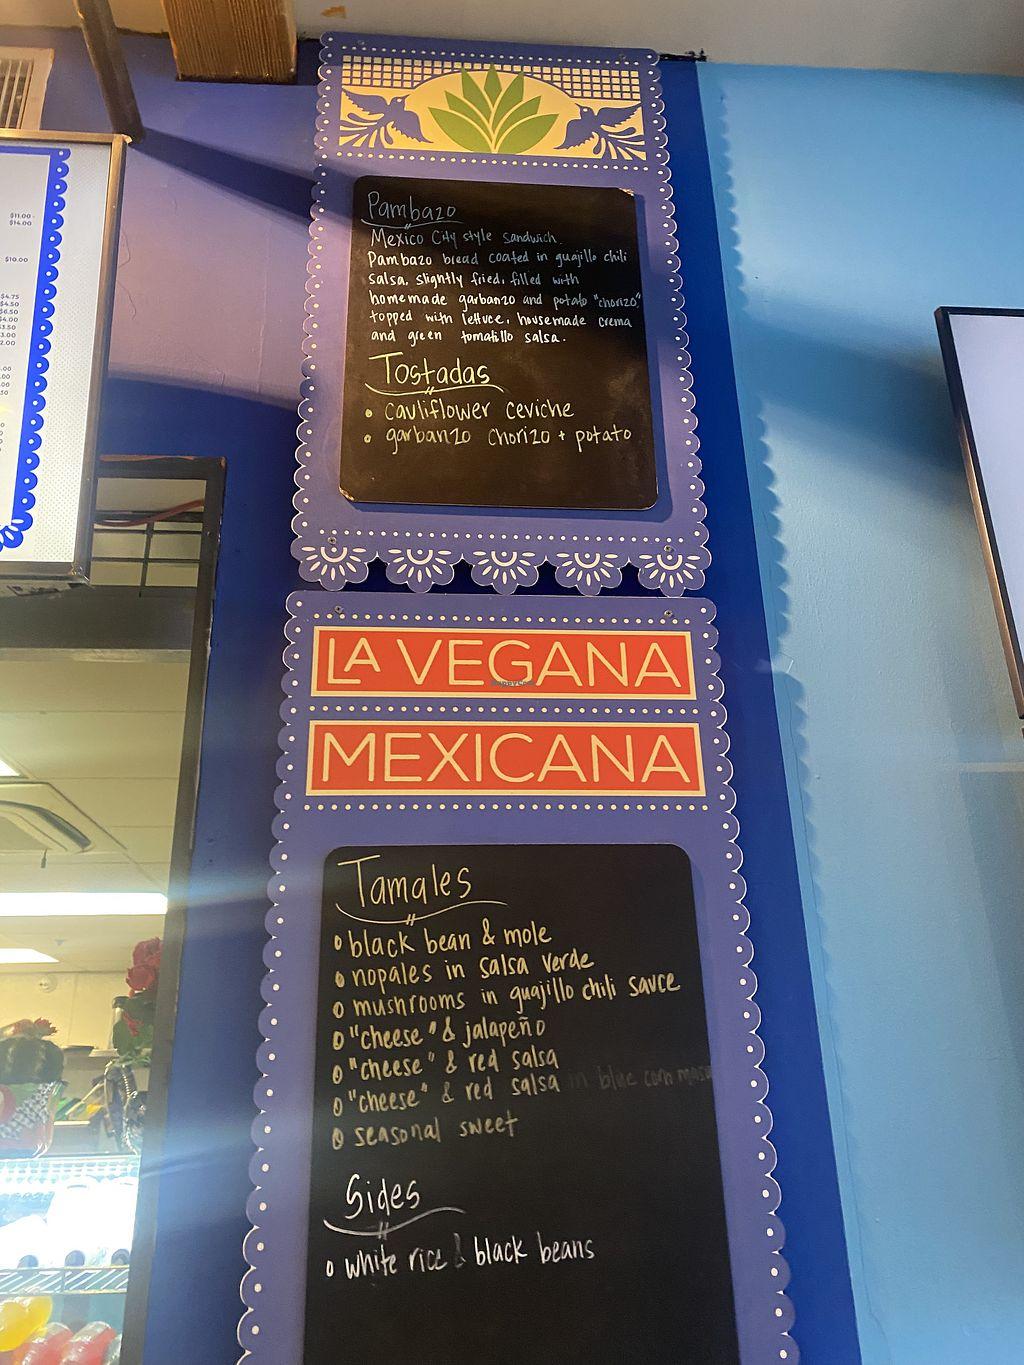 $11.00
$14.00
$10.00
$4.75
$4.50
$6.50
$4.00
$3.50
Pambazo
Mexico City style sandwich.
Pambazo bread coated in guajillo chili
salsa, slightly fried, filled with
homemade garbanzo and potato "chorizo"
topped with lettuce, housemade crema
and green tomatillo salsa.
Tostadas
• cauliflower ceviche
• garbanzo chorizo + potato
LA VEGANA
HappyCow
MEXICANA
Tamales
• black bean & mole
• nopales in salsa verde
• mushrooms in guajillo chili sauce
• "cheese" & jalapeño
• "cheese" & red salsa
• "cheese" & red salsa in blue corn masa
• seasonal sweet
Sides
• white rice & black beans